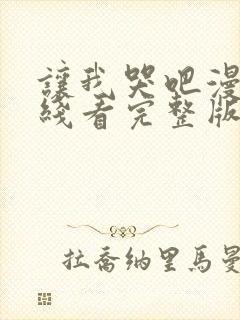 讓我哭吧漫
綫看完整版
拉喬納里馬曼